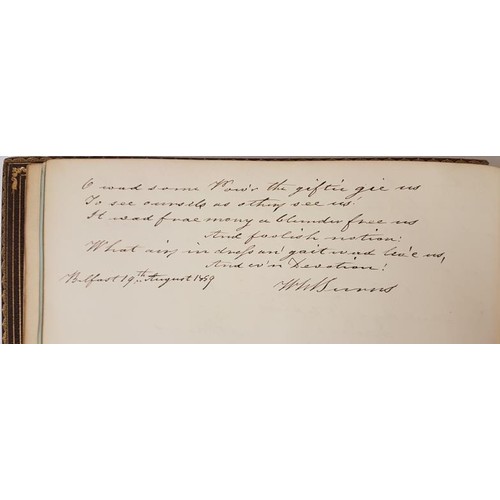 O wad some Pow'r the giftie gie us
To see oursels as others see us!
It wad frae mony a blunder free us
And foolish notion:
What airs in dress an' gait wad lea'e us,
And ev'n Devotion!
Belfast 19th August 1859
Burns